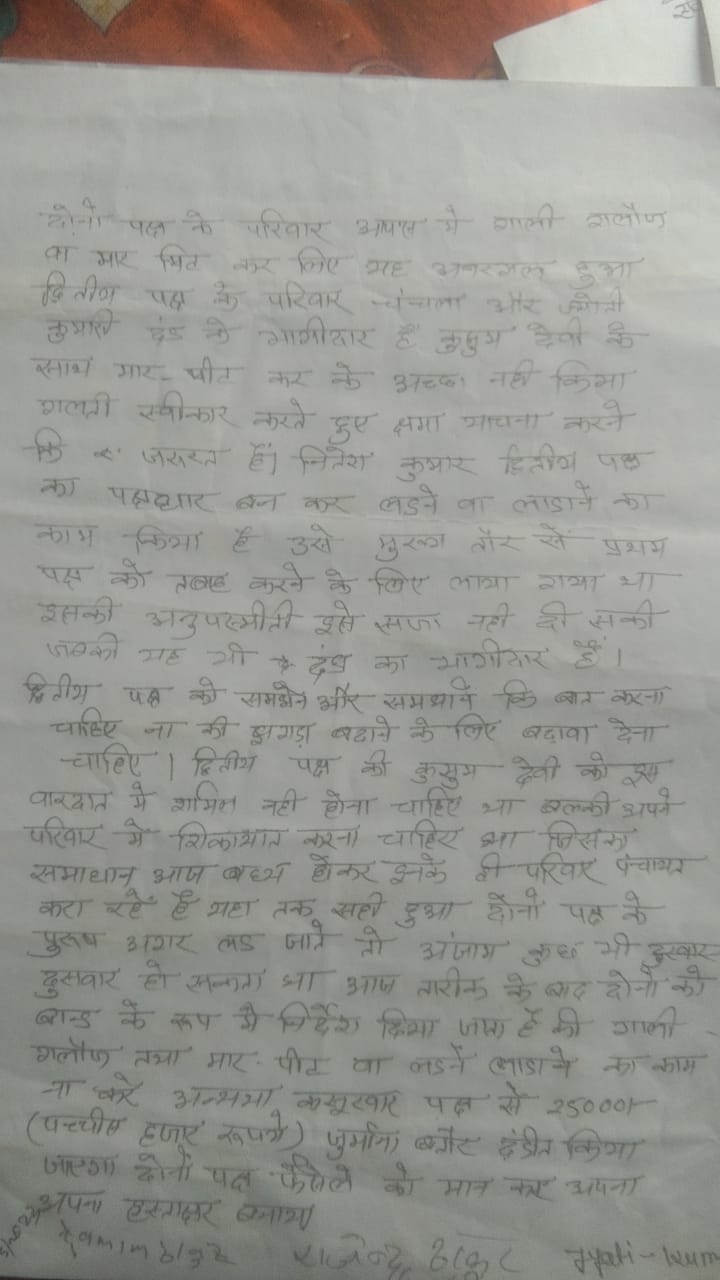 दोनो पक्ष के परिवार आपस मे गाली गलौज
वा मार पिट कर लिए यह अनरगल हुआ
द्वितीय पक्ष के परिवार चंचला और ज्योती
कुमारी दंड के भागीदार हैं कुसुम देवी के
साथ मार-पीट कर के अच्छा नही किया
गलती स्वीकार करते हुए क्षमा याचना करने
कि जरूरत हैं। नितेश कुमार द्वितीय पक्ष
का पक्षधार बन कर लडने वा लाडाने का
काम किया है उसे मुख्य तौर से प्रथम
पक्ष को तबाह करने के लिए लाया गया था
इसकी अनुपस्थीती इसे सजा नही दी सकी
जबकी यह भी दंड का भागीदार हैं।
द्वितीय पक्ष को समझने और समझाने कि बात करना
चाहिए ना की झगड़ा बढाने के लिए बढावा देना
चाहिए। द्वितीय पक्ष की कुसुम देवी को इस
वारदात मे शामिल नही होना चाहिए था बल्की अपने
परिवार मे शिकायात करना चाहिए था जिसका
समाधान आज बध्य होकर इनके ही परिवार पंचायत
करा रहे हैं यहा तक सही हुआ दोनो पक्ष के
पुरूष अगर लड जाते तो अंजाम कुछ भी दुस्वार
दुसवार हो सकता था आज तारीक के बाद दोनो को
बान्ड के रूप मे निर्देश दिया जाता हैं की गाली
गलौज तथा मार-पीट वा लडने लाडाने का काम
ना करे अन्यथा कसूरवार पक्ष से 25000/-
(पच्चीस हजार रूपये) जुर्माना बतौर दंडीत किया
जाएगा दोनो पक्ष फैसले को मान कर अपना
अपना हस्ताक्षर बनाया
राजेन्द्र ठाकुर Jyoti-kum